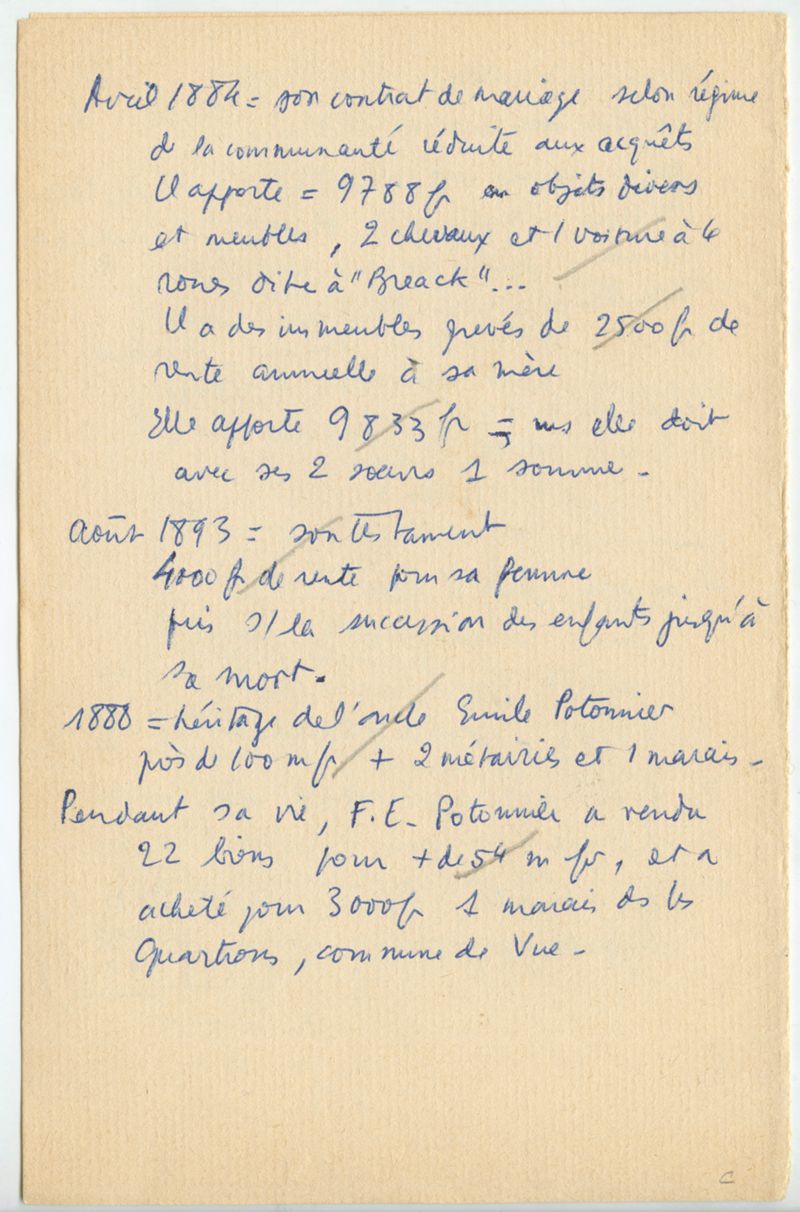 Avril 1884 = son contrat de mariage selon régime
de la communauté réduite aux acquêts
Il apporte = 9788 fr en objets divers
et meubles, 2 chevaux et 1 voiture à 4
roues dite à "Breack"...
Il a des immeubles grevés de 2500 fr de
rente annuelle à sa mère
Elle apporte 9833 fr = ms elle doit
avec ses 2 soeurs 1 somme -
Août 1893 = son testament
4000 fr de rente pour sa femme
puis s/ la succession des enfants jusqu'à
sa mort.
1888 = héritage de l'oncle Emile Potonnier
près de 100 m fr + 2 métairies et 1 marais -
Pendant sa vie, F.E. Potonnier a vendu
22 biens pour + de 54 m fr, et a
acheté pour 3000 fr 1 marais ds les
Quartrons, commune de Vue -
C